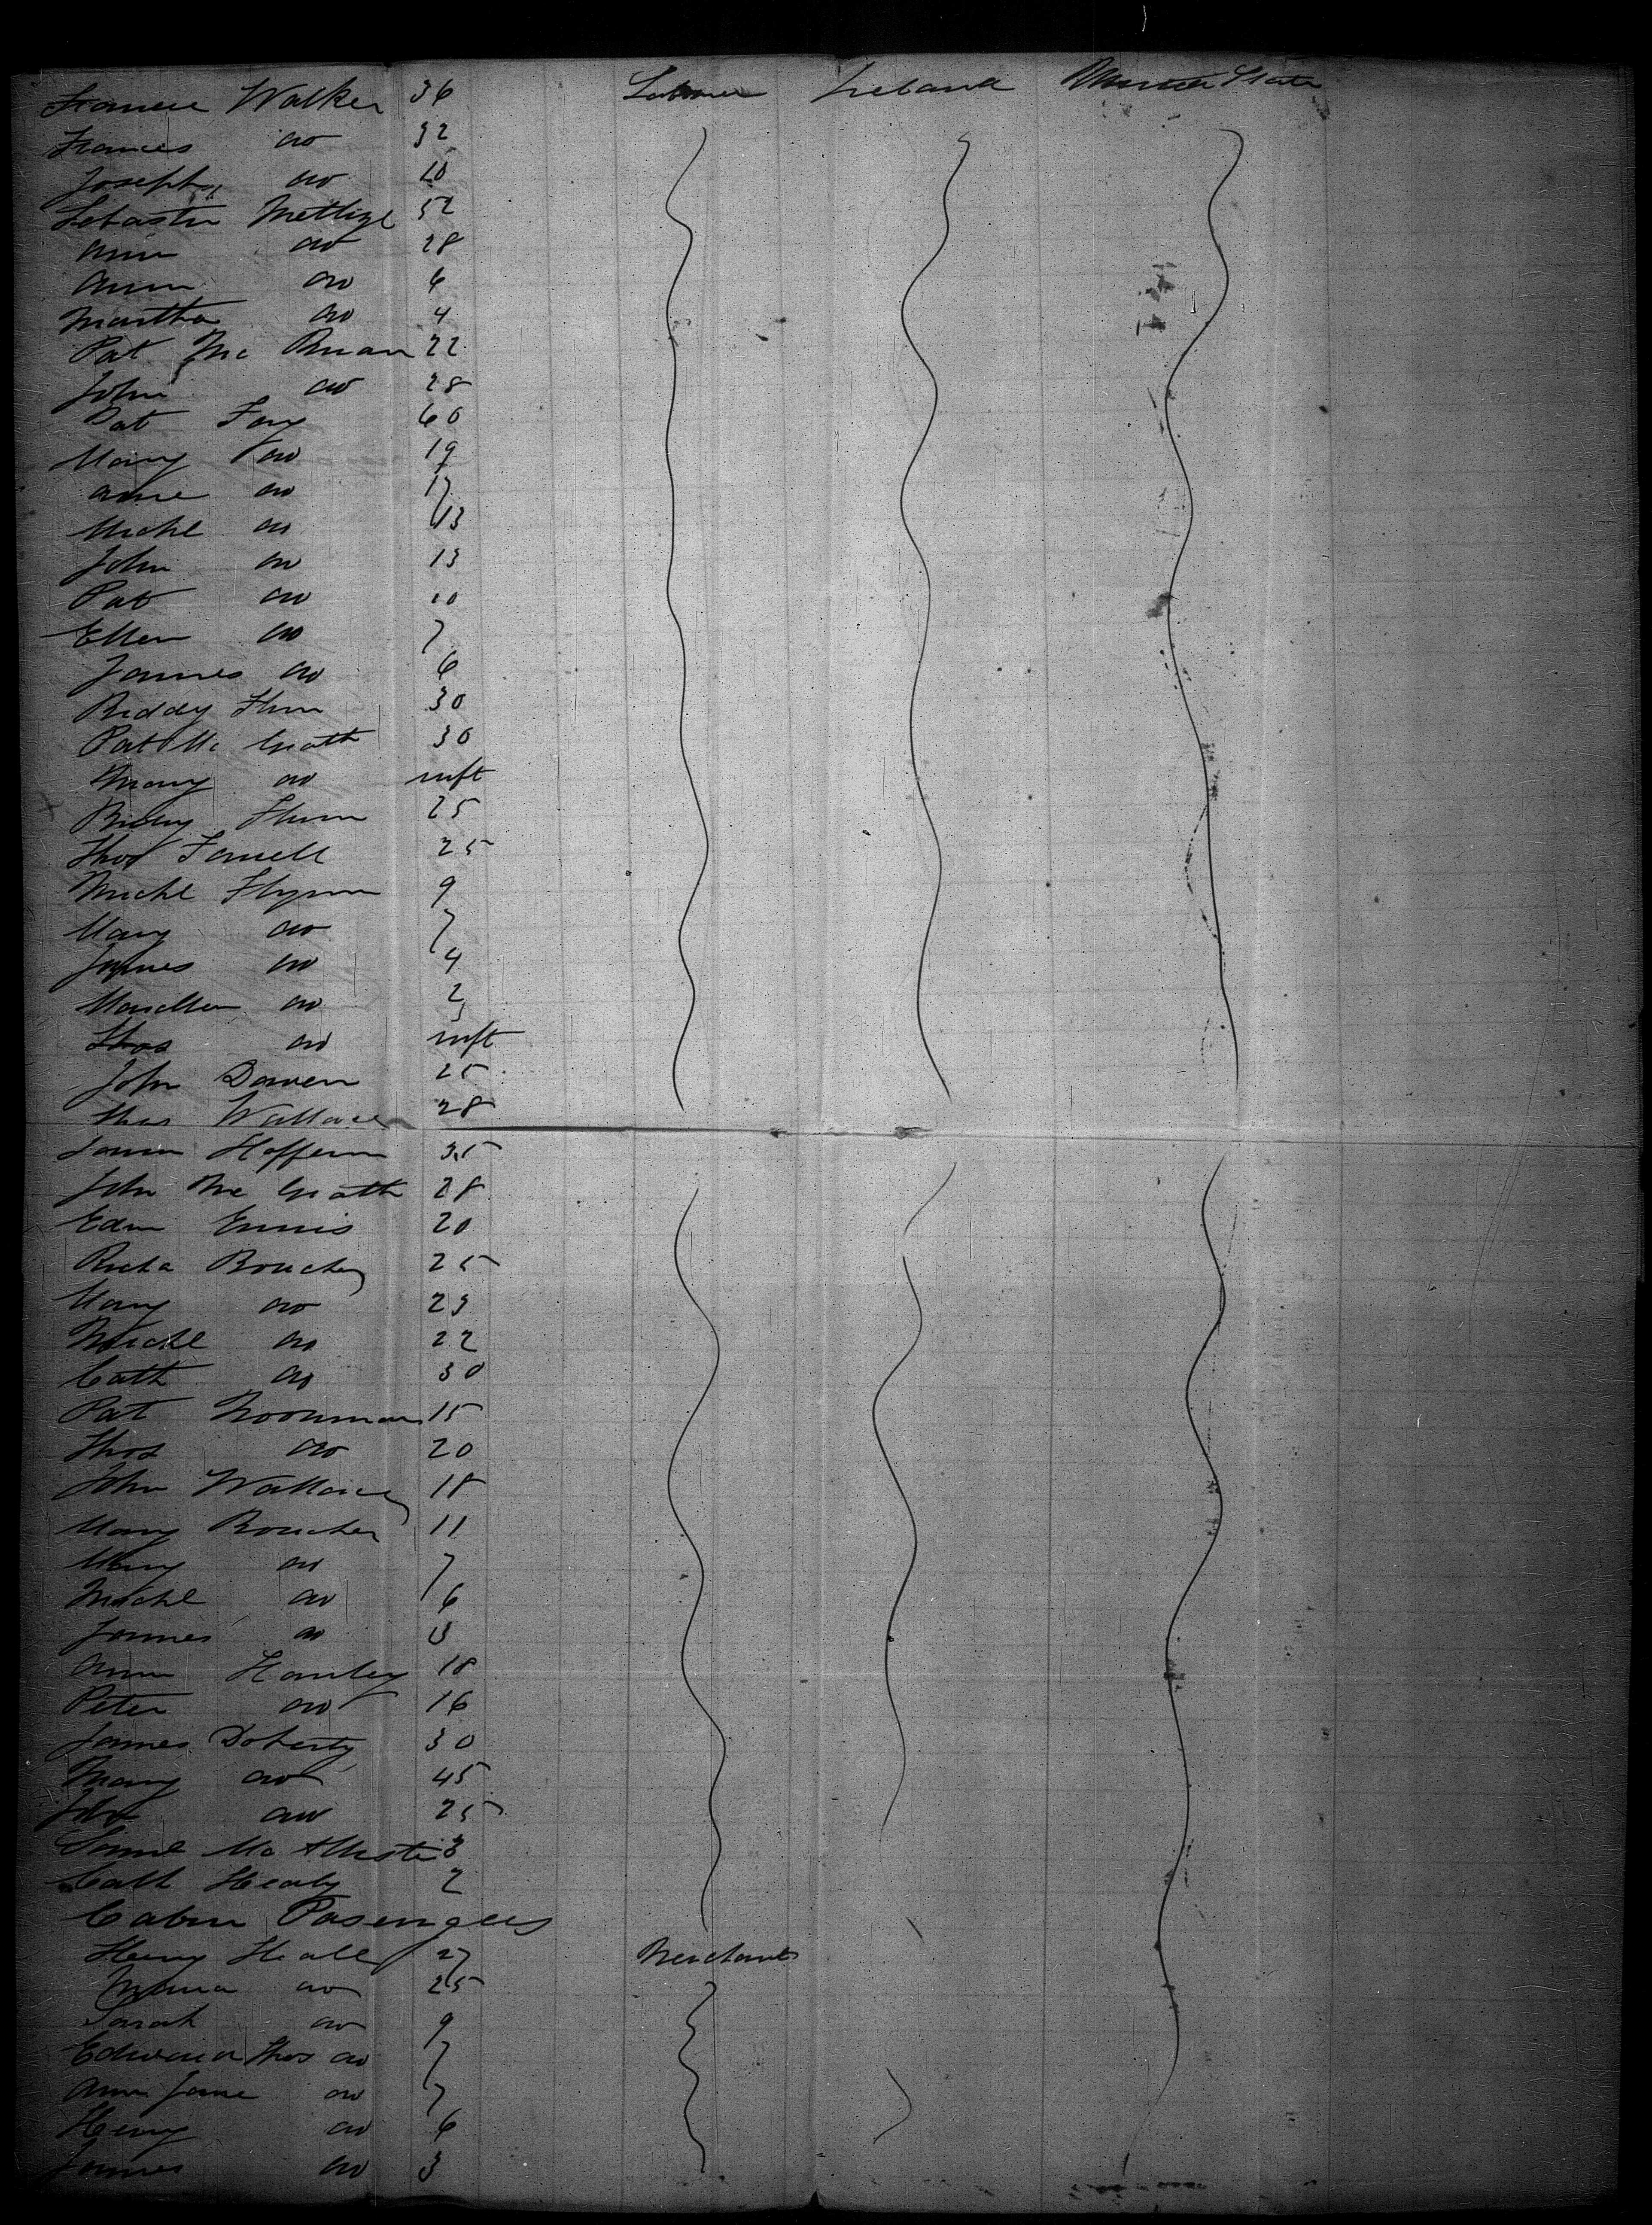 Walker 36 Labourer Ireland United States
Frances do 32
Joseph do 10
Sebastn 52
Ann do 28
Ann do 6
Martha do 4
Pat Mc 22
John do 28
Pat Foy 60
Mary do 19
Anne do 17
Michl do 13
John do 13
Pat do 10
Ellen do 7
James do 6
Biddy Flinn 30
Pat McGrath 30
Mary do inft
Flinn 25
Thos Farrell 25
Michl Flynn 9
Mary do 7
James do 4
do 2
Thos do inft
John 25
Thos Wallace 28
Heffernn 35
John McGrath 28
Edm Ennis 20
Richd Boucher 25
Mary do 23
Michl do 22
Cath do 30
Pat Noonnan 15
Thos do 20
John Wallace 18
Mary Boucher 11
Mary do 7
Michl do 6
James do
Ann Hanley 18
Peter do 16
James Doherty 30
Mary do 45
John do 25
Saml Mc 3
Cath Healy 2
Cabin Pasengers
Henry Heall 27 Merchant
Maria do 25
Sarah do 9
Edward Thos do 7
Ann Jane do 7
Henry do 6
James do 3